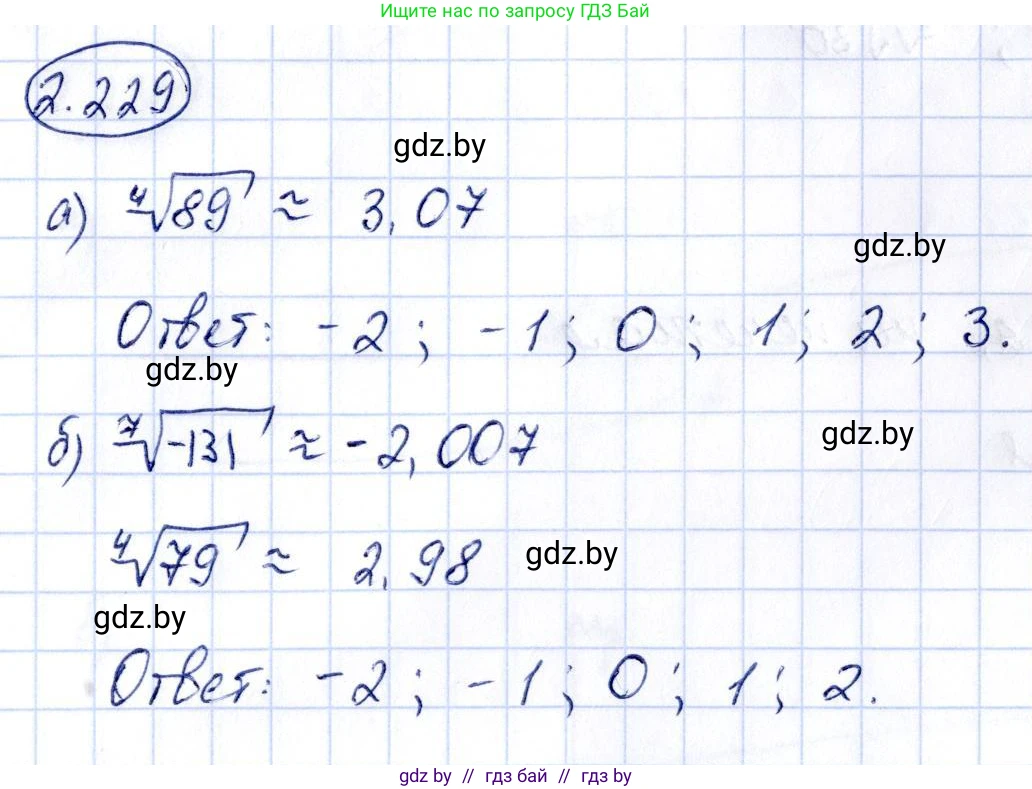 Ищите нас по запросу ГДЗ Бай
2.229
gdz.by
а) ∜89 ≈ 3,07
gdz.by
Ответ: -2; -1; 0; 1; 2; 3.
gdz.by
б) ⁷√-131 ≈ -2,007
gdz.by
∜79 ≈ 2,98
gdz.by
gdz.by
Ответ: -2; -1; 0; 1; 2.
gdz by // гдз бай // гдз by